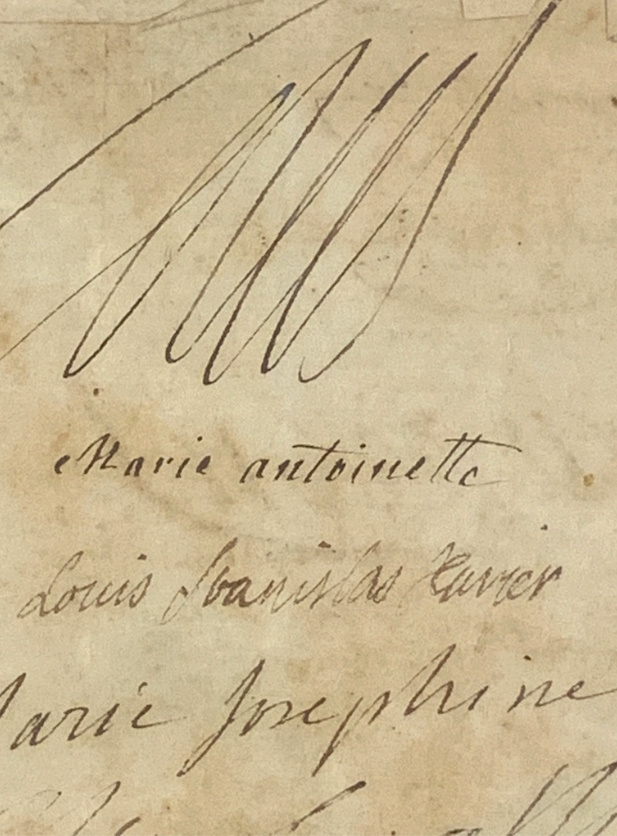 Marie antoinette
Louis Stanislas Xavier
Marie Josephine